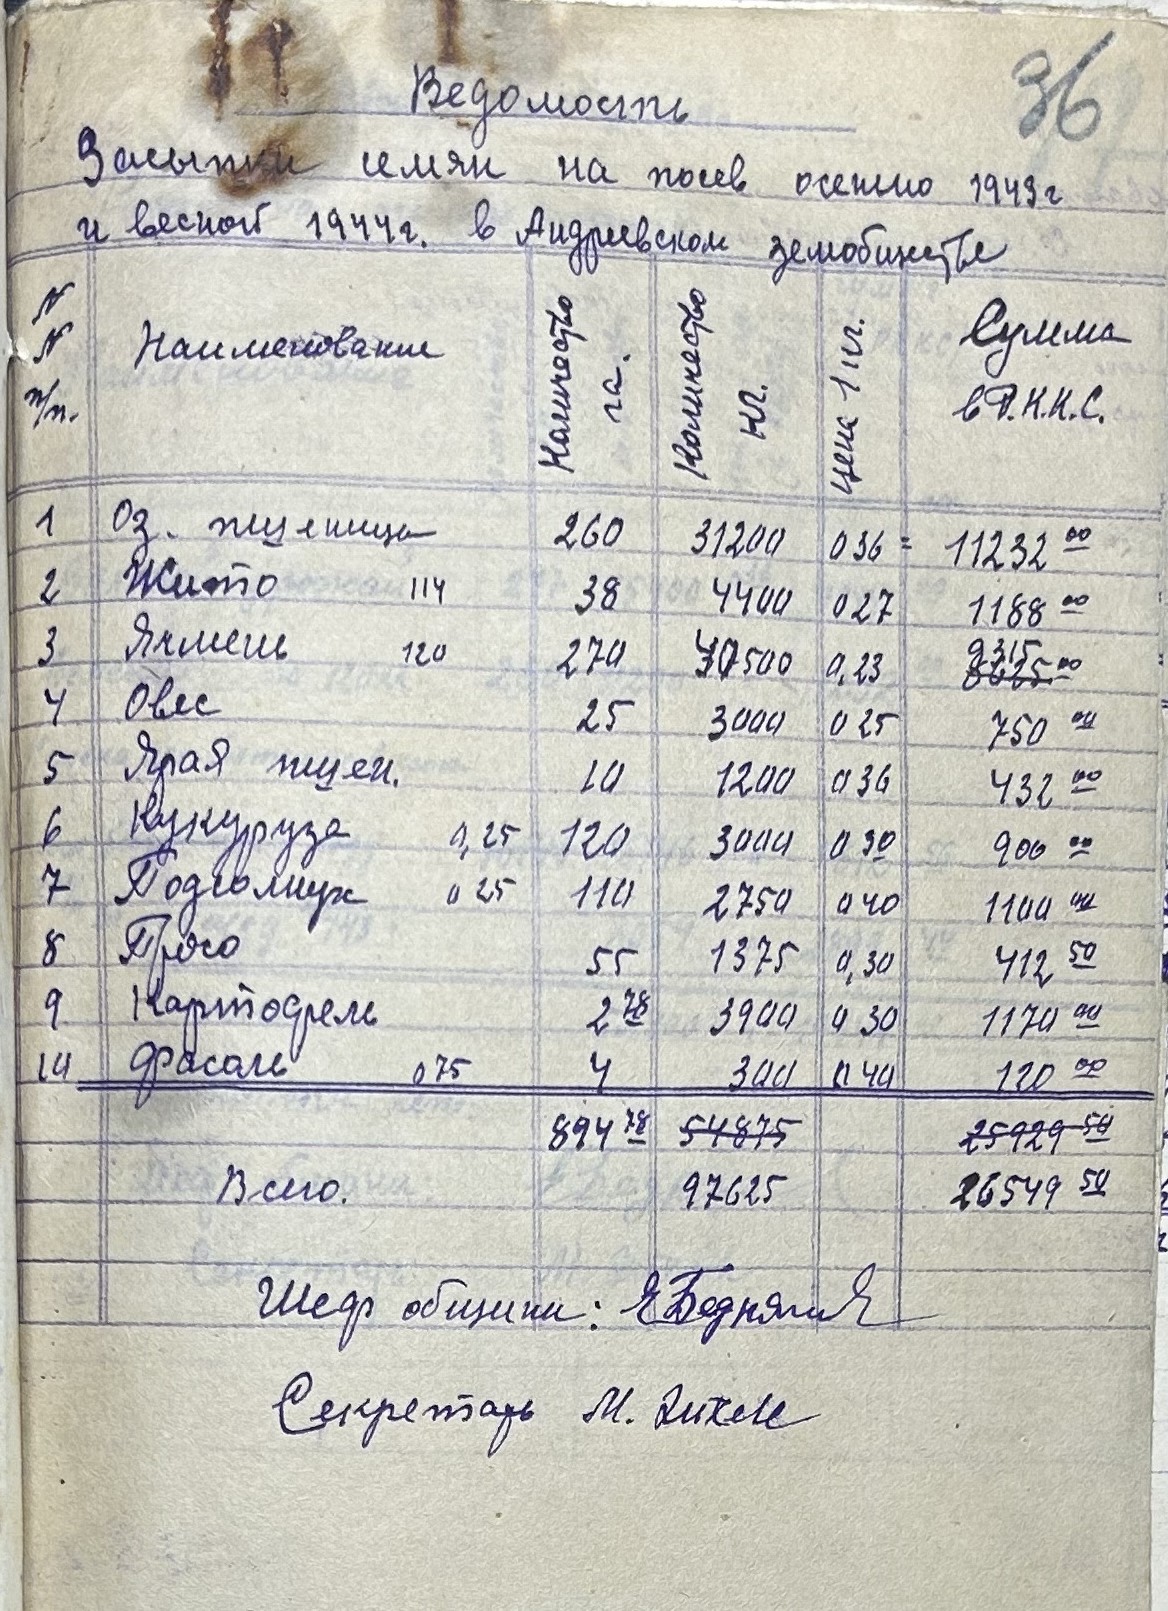 36
Ведомость
Засыпки семян на посев осенью 1943 г
и весной 1944 г. в Андриевском земобществе
№ № п/п. Наименование Количество га. Количество кг. Цена 1 кг. Сумма в Р.К.К.С.
1 Оз. пшеница 260 31200 0 36 = 11232 00
2 Жито 114 38 4400 0 27 1188 00
3 Ячмень 120 270 40500 0,23 9315 00
4 Овес 25 3000 0 25 750 00
5 Ярая пшен. 10 1200 0 36 432 00
6 Кукуруза 0,25 120 3000 0 30 900 00
7 Подсолнух 0 25 110 2750 0 40 1100 00
8 Просо 55 1375 0,30 412 50
9 Картофель 2 78 3900 0 30 1170 00
10 Фасоль 0 75 4 300 0 40 120 00
894 78 54875 25929 50
Всего. 97625 26549 50
Шеф общины:
Секретарь М.